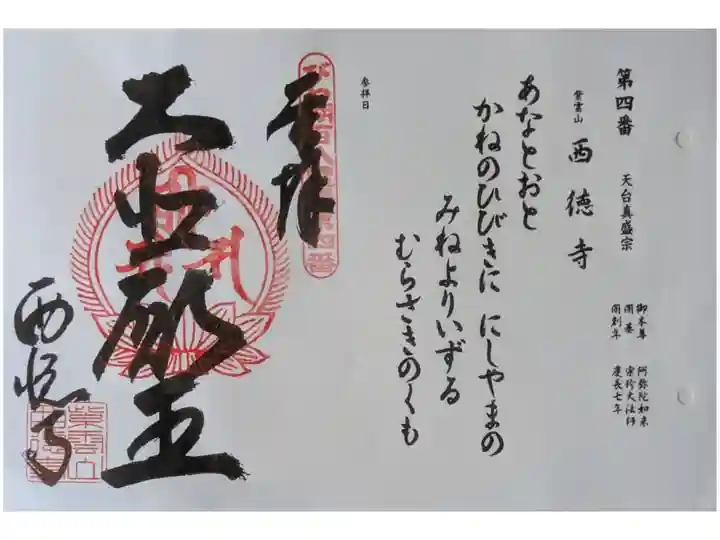 第四番 天台真盛宗
御本尊 阿弥陀如来
開基 宗珍大法師
開創年 慶長七年
紫雲山 西徳寺
あなとおと
かねのひびきに にしやまの
みねよりいずる
むらさきのくも
参拝日
びわ湖百八霊場第四番
奉拝
西徳寺
紫雲山
西徳寺